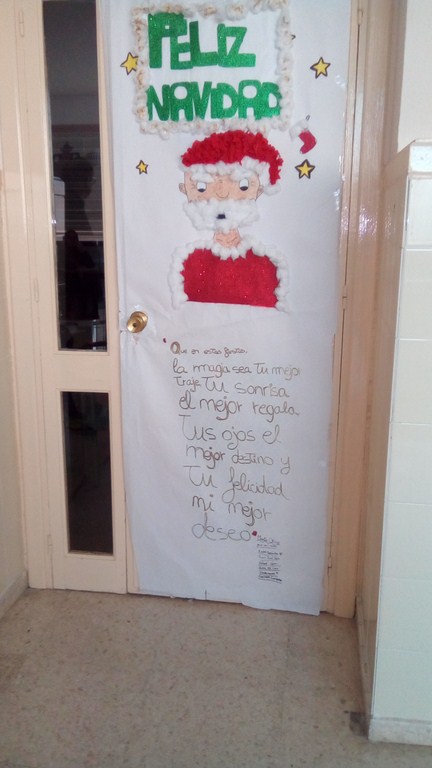 FELIZ
NAVIDAD
Que en estas fiestas
la magia sea Tu mejor
Traje Tu sonrisa
el mejor regalo
Tus ojos el
mejor destino y
Tu felicidad
mi mejor
deseo